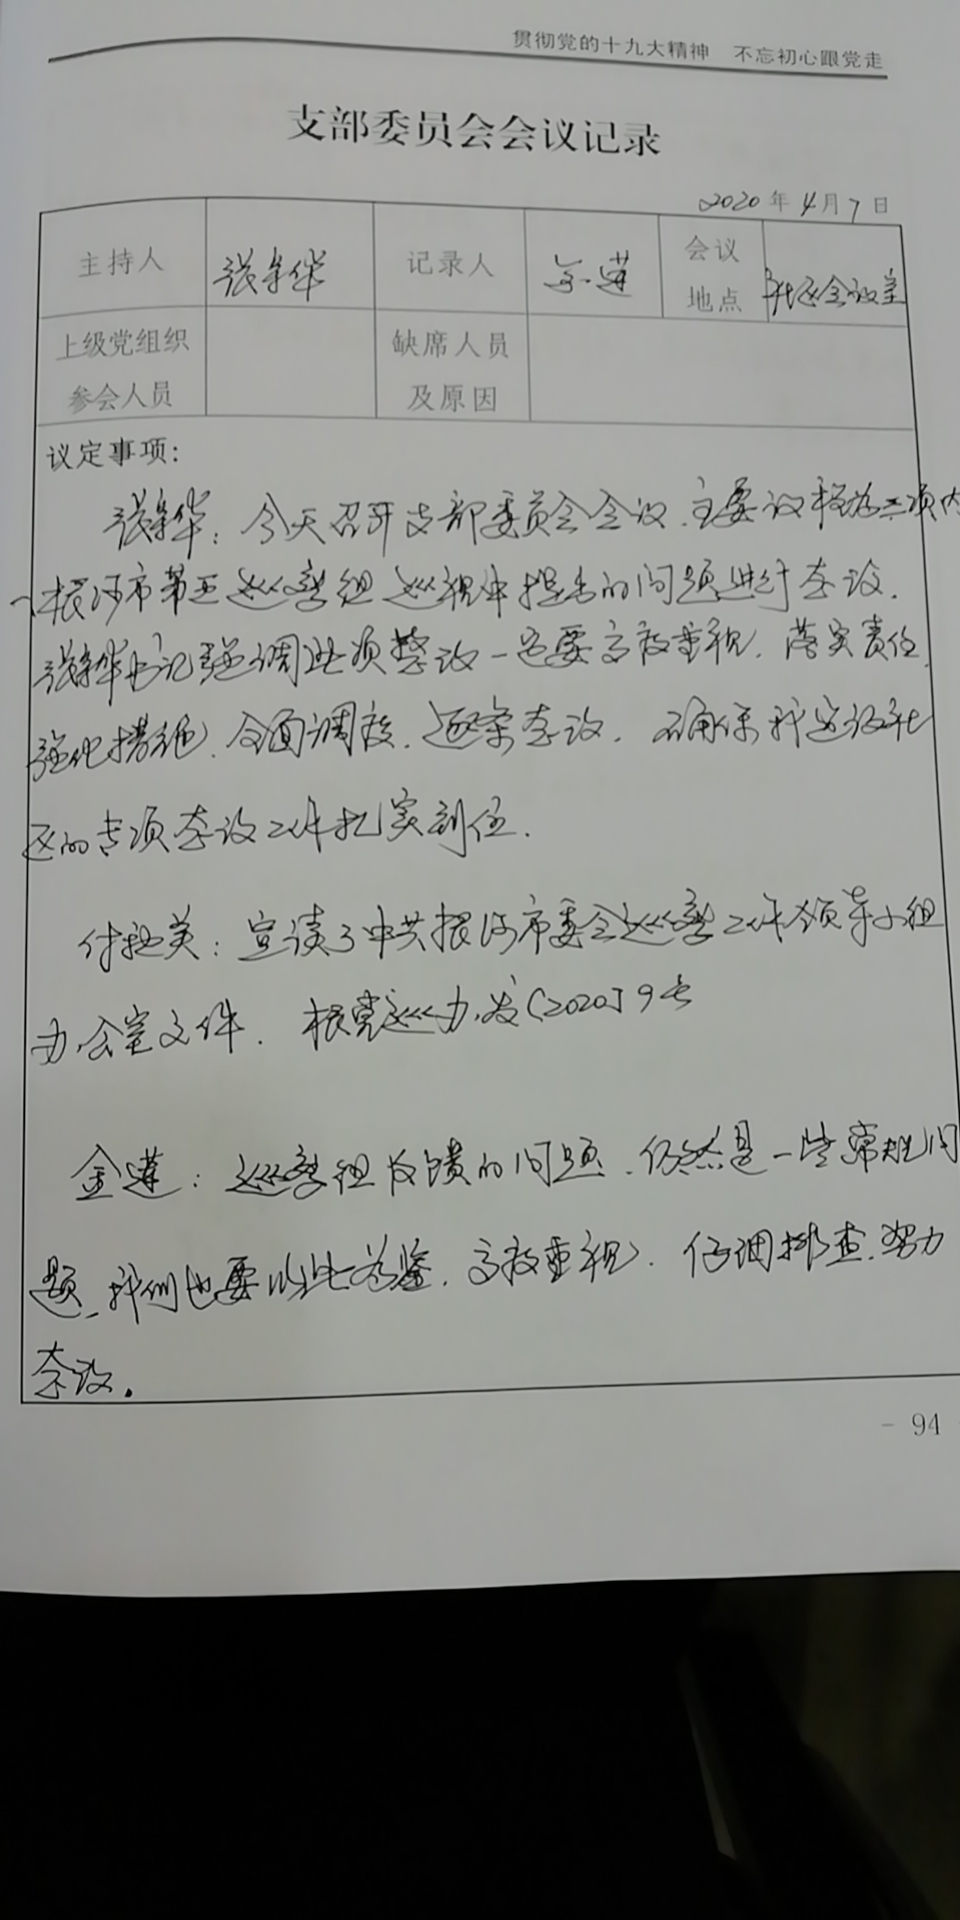 贯彻党的十九大精神 不忘初心跟党走
支部委员会会议记录
2020年4月7日
主持人 记录人 金莲 会议地点 社区会议室
上级党组织参会人员 缺席人员及原因
议定事项：
今天召开支部委员会会议，主要议程为三项内
一根河市第五巡察组巡视中提出的问题进行整改．
书记强调此项整改一定要高度重视，落实责任，
强化措施，全面调度，逐条整改，确保我建设社
区的专项整改工作扎实到位．
宣读了中共根河市委会巡察工作领导小组
办公室文件． 根党巡办发〔2020〕9号
金莲：巡察组反馈的问题，仍然是一些常规问
题，我们也要以此为鉴，高度重视，仔细排查，努力
整改．
- 94